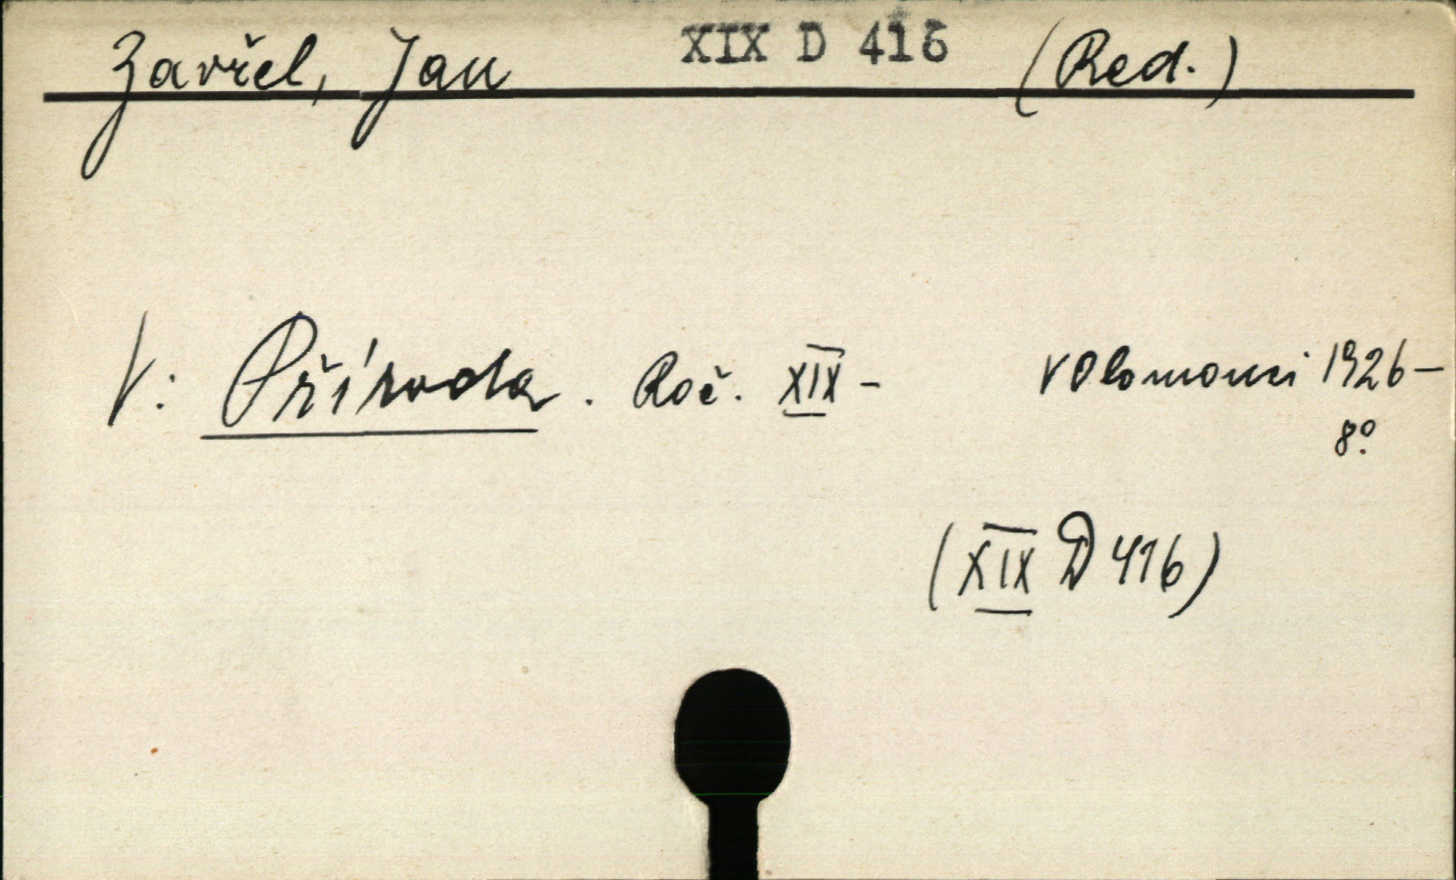 Zavřel, Jan XIX D 416 (Red.)
V: Příroda. Roč. XIX - v Olomouci 1926-
8°.
(XIX D 416)